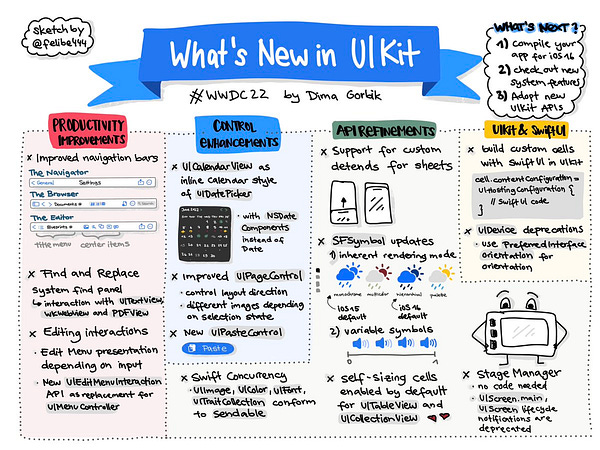 sketch by
@felibe444
What's New in UIKit
#WWDC22 by Dima Gorbik
WHAT'S NEXT?
1) compile your
app for iOS 16
2) check out new
system features
3) Adopt new
UIKit APIs
PRODUCTIVITY
IMPROVEMENTS
x Improved navigation bars
The Navigator
< General
Settings
The Browser
Documents
Search
The Editor
Blueprints
title menu center items
x Find and Replace
system find panel
interaction with UITextView,
WKWebView and PDFView
x Editing interactions
• Edit Menu presentation
depending on input
• New UIEditMenuInteraction
API as replacement for
UIMenuController
CONTROL
ENHANCEMENTS
x UICalendarView as
inline calendar style
of UIDatePicker
• with NSDate
Components
instead of
Date
x Improved UIPageControl
• control layout direction
• different images depending
on selection state
x New UIPasteControl
Paste
x Swift Concurrency
• UIImage, UIColor, UIFont,
UITraitCollection conform
to Sendable
API REFINEMENTS
x Support for custom
detends for sheets
x SFSymbol updates
1) inherent rendering mode
monochrome multicolor hierarchical palette
iOS 15
default
iOS 16
default
2) variable symbols
0 1
x self-sizing cells
enabled by default
for UITableView and
UICollectionView
UIKit & SwiftUI
x build custom cells
with SwiftUI in UIKit
cell.contentConfiguration =
UIHostingConfiguration {
// SwiftUI code
}
x UIDevice deprecations
• use PreferredInterface
orientation for
orientation
x Stage Manager
• no code needed
• UIScreen.main,
UIScreen lifecycle
notifications are
deprecated